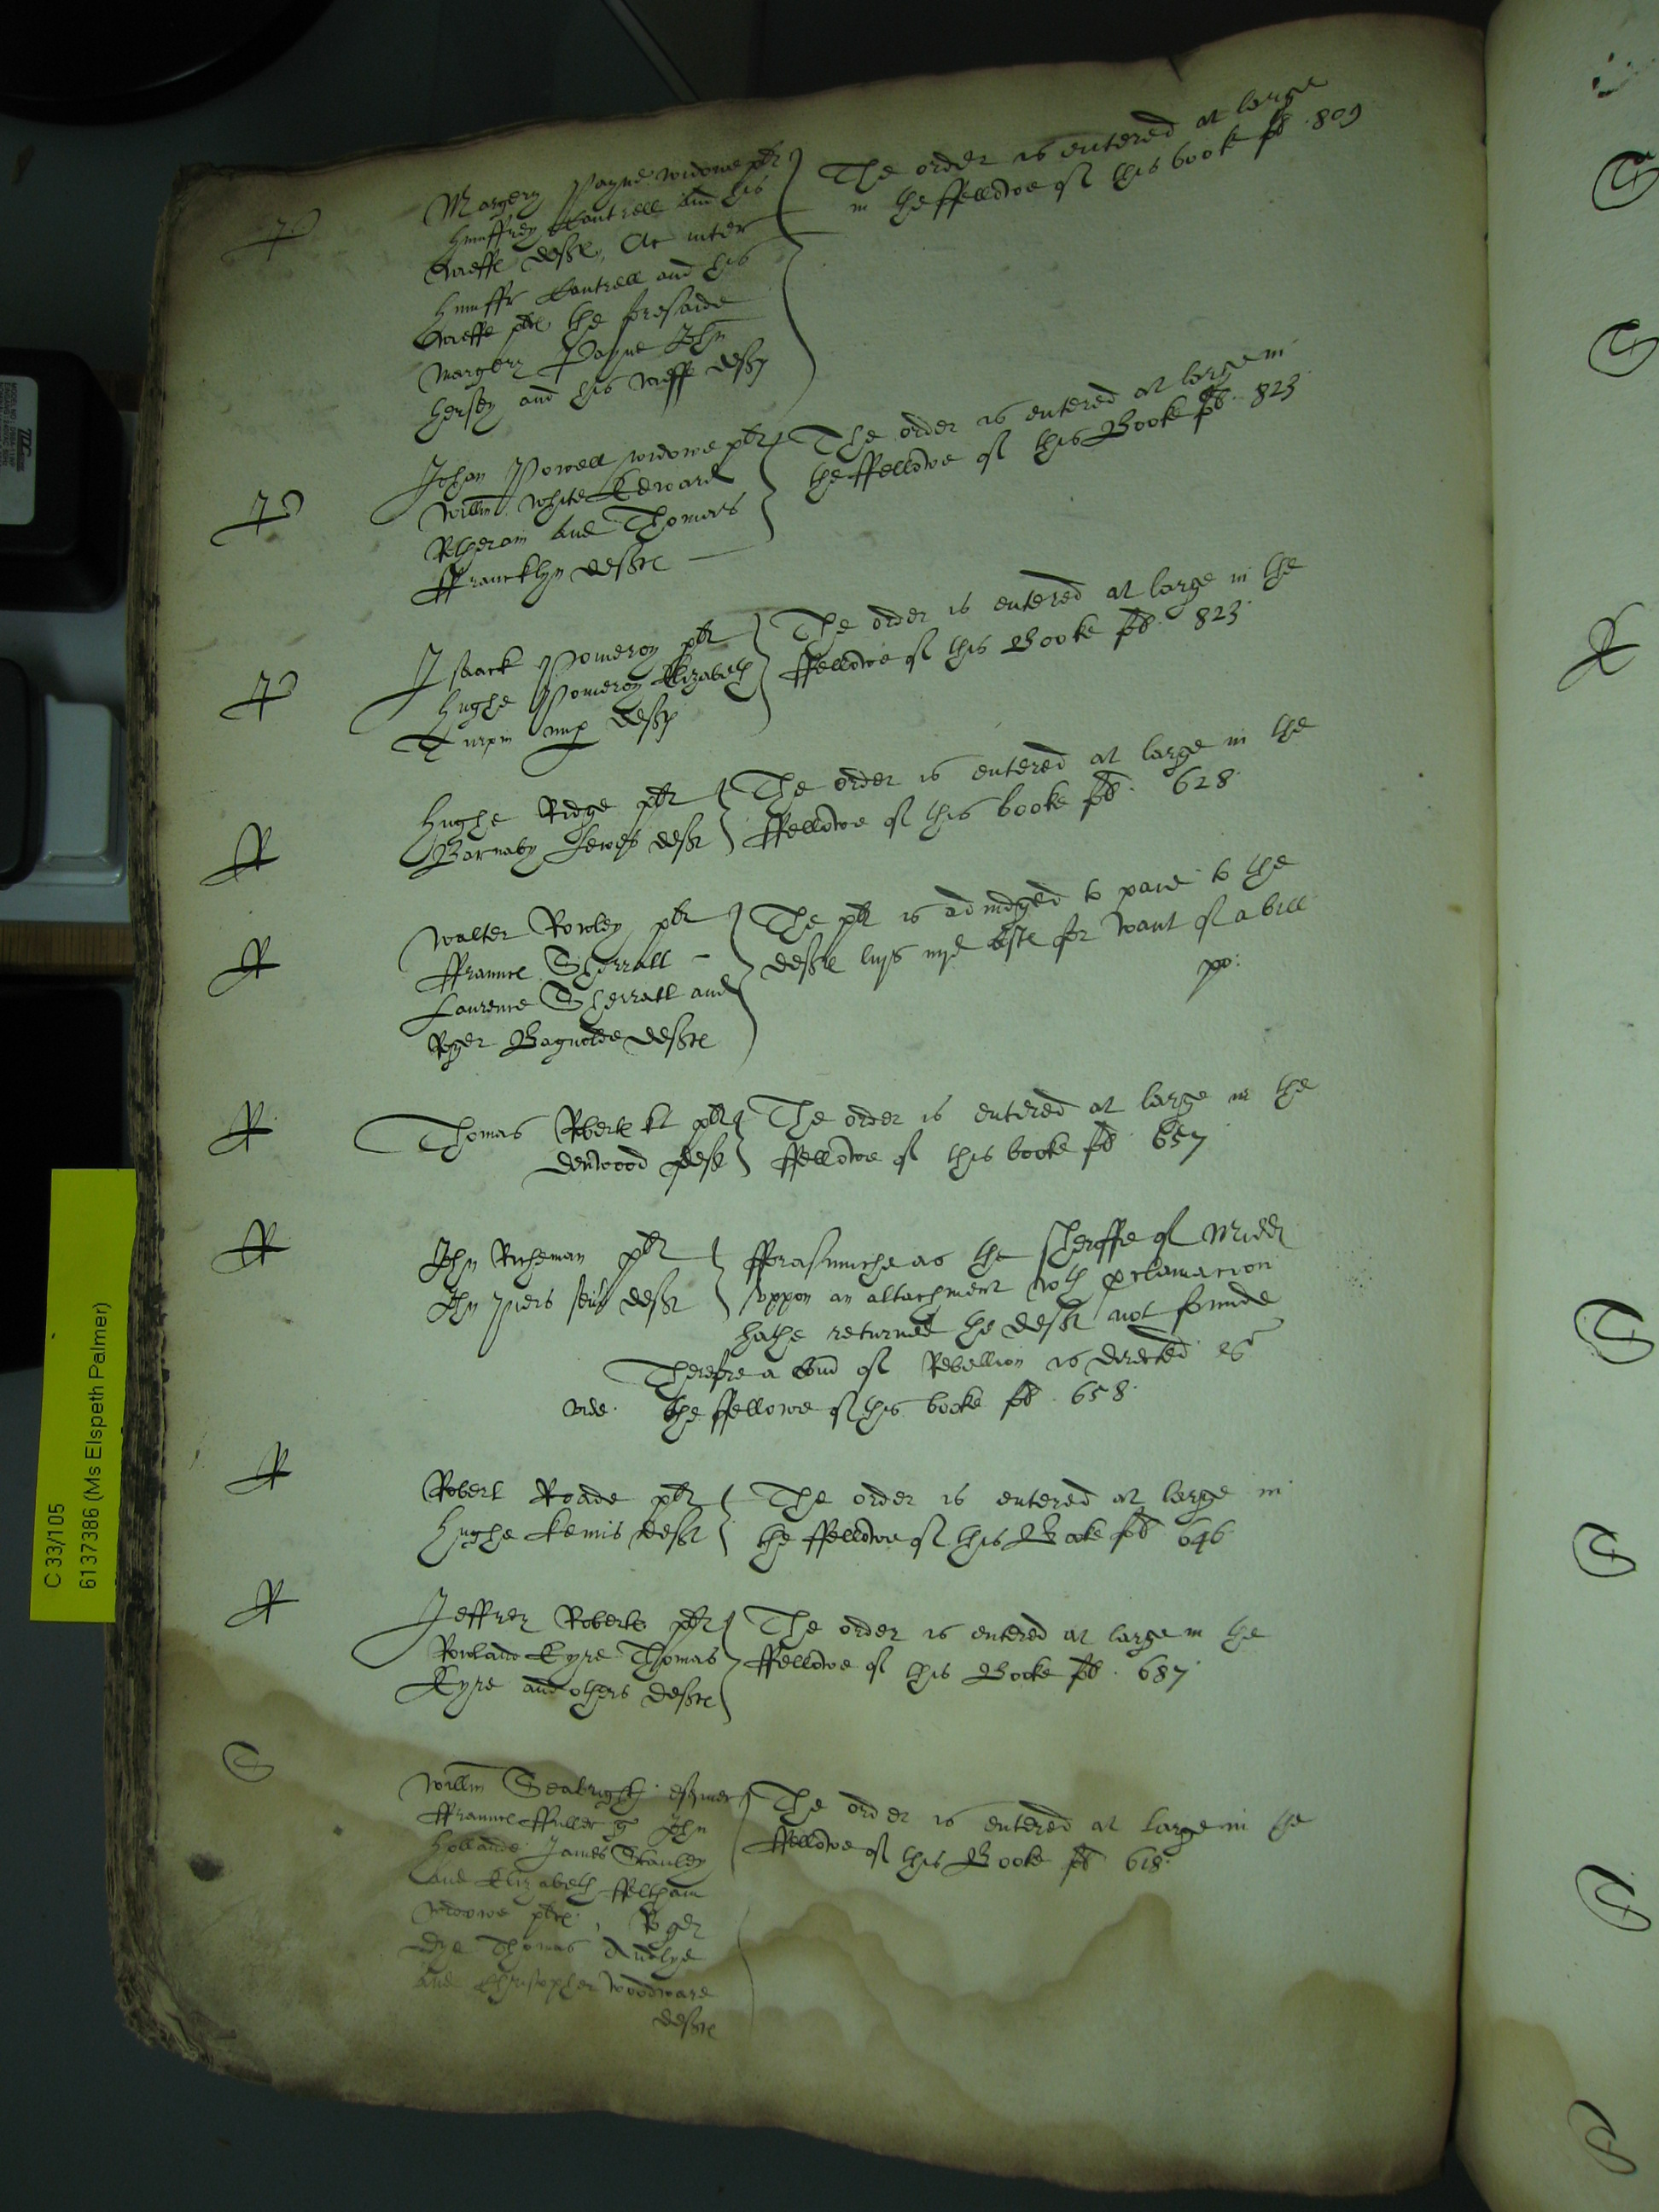 P
Margery Payne widowe plt
Humffrey Cantrell and his
wieffe deftes, Ac inter
Humffr Cantrell and his
wieffe plts the foresaide
Margery Payne John
Hersey and his wieff deftes
The order is entered at large
in the ffellowe of this booke fo 809
P
Johan Powell widowe plt
Willm White Edward
and Thomas
ffrancklyn deftes
The order is entered at large in
the ffellowe of this Booke fo. 823
P
Isaack Pomeroy plt
Hughe Pomeroy Elizabeth
Turpin deftes
The order is entered at large in the
ffellowe of this Booke fo. 823
R
Hughe Ridge plt
Barnaby Lewes deft
The order is entered at large in the
ffellowe of this booke fo. 628
R
Walter Rowley plt
ffraunce Sherratt
Laurence Sherratt and
Roger Bagnolde deftes
The plt is adiudged to paie to the
deftes costes for want of a bill
po:
R
Thomas Robertes plt
Denwood deft
The order is entered at large in the
ffellowe of this booke fo 657
R
John Richeman plt
John deft
fforasmuche as the Sheriffe of Midd
uppon an attachment wth proclamacion
hathe returned the deft not founde
Therefore a Com of Rebellion is directed
vide the ffellowe of this booke fo. 658
R
Robert Roade plt
Hughe Kemis deft
The order is entered at large in
the ffellowe of this Booke fo 646
R
Jeffrey Robertes plt
Rowland Eyre Thomas
Eyre and others deftes
The order is entered at large in the
ffellowe of this Booke fo. 687
S
Willm Seabright esquier
ffraunce ffuller g John
Hollande James Stanley
and Elizabeth ffeltham
widowe plts, Roger
Dye Thomas
and Christopher Woodware
deftes
The order is entered at large in the
ffellowe of this Booke fo 618
C 33/105
6137386 (Ms Elspeth Palmer)